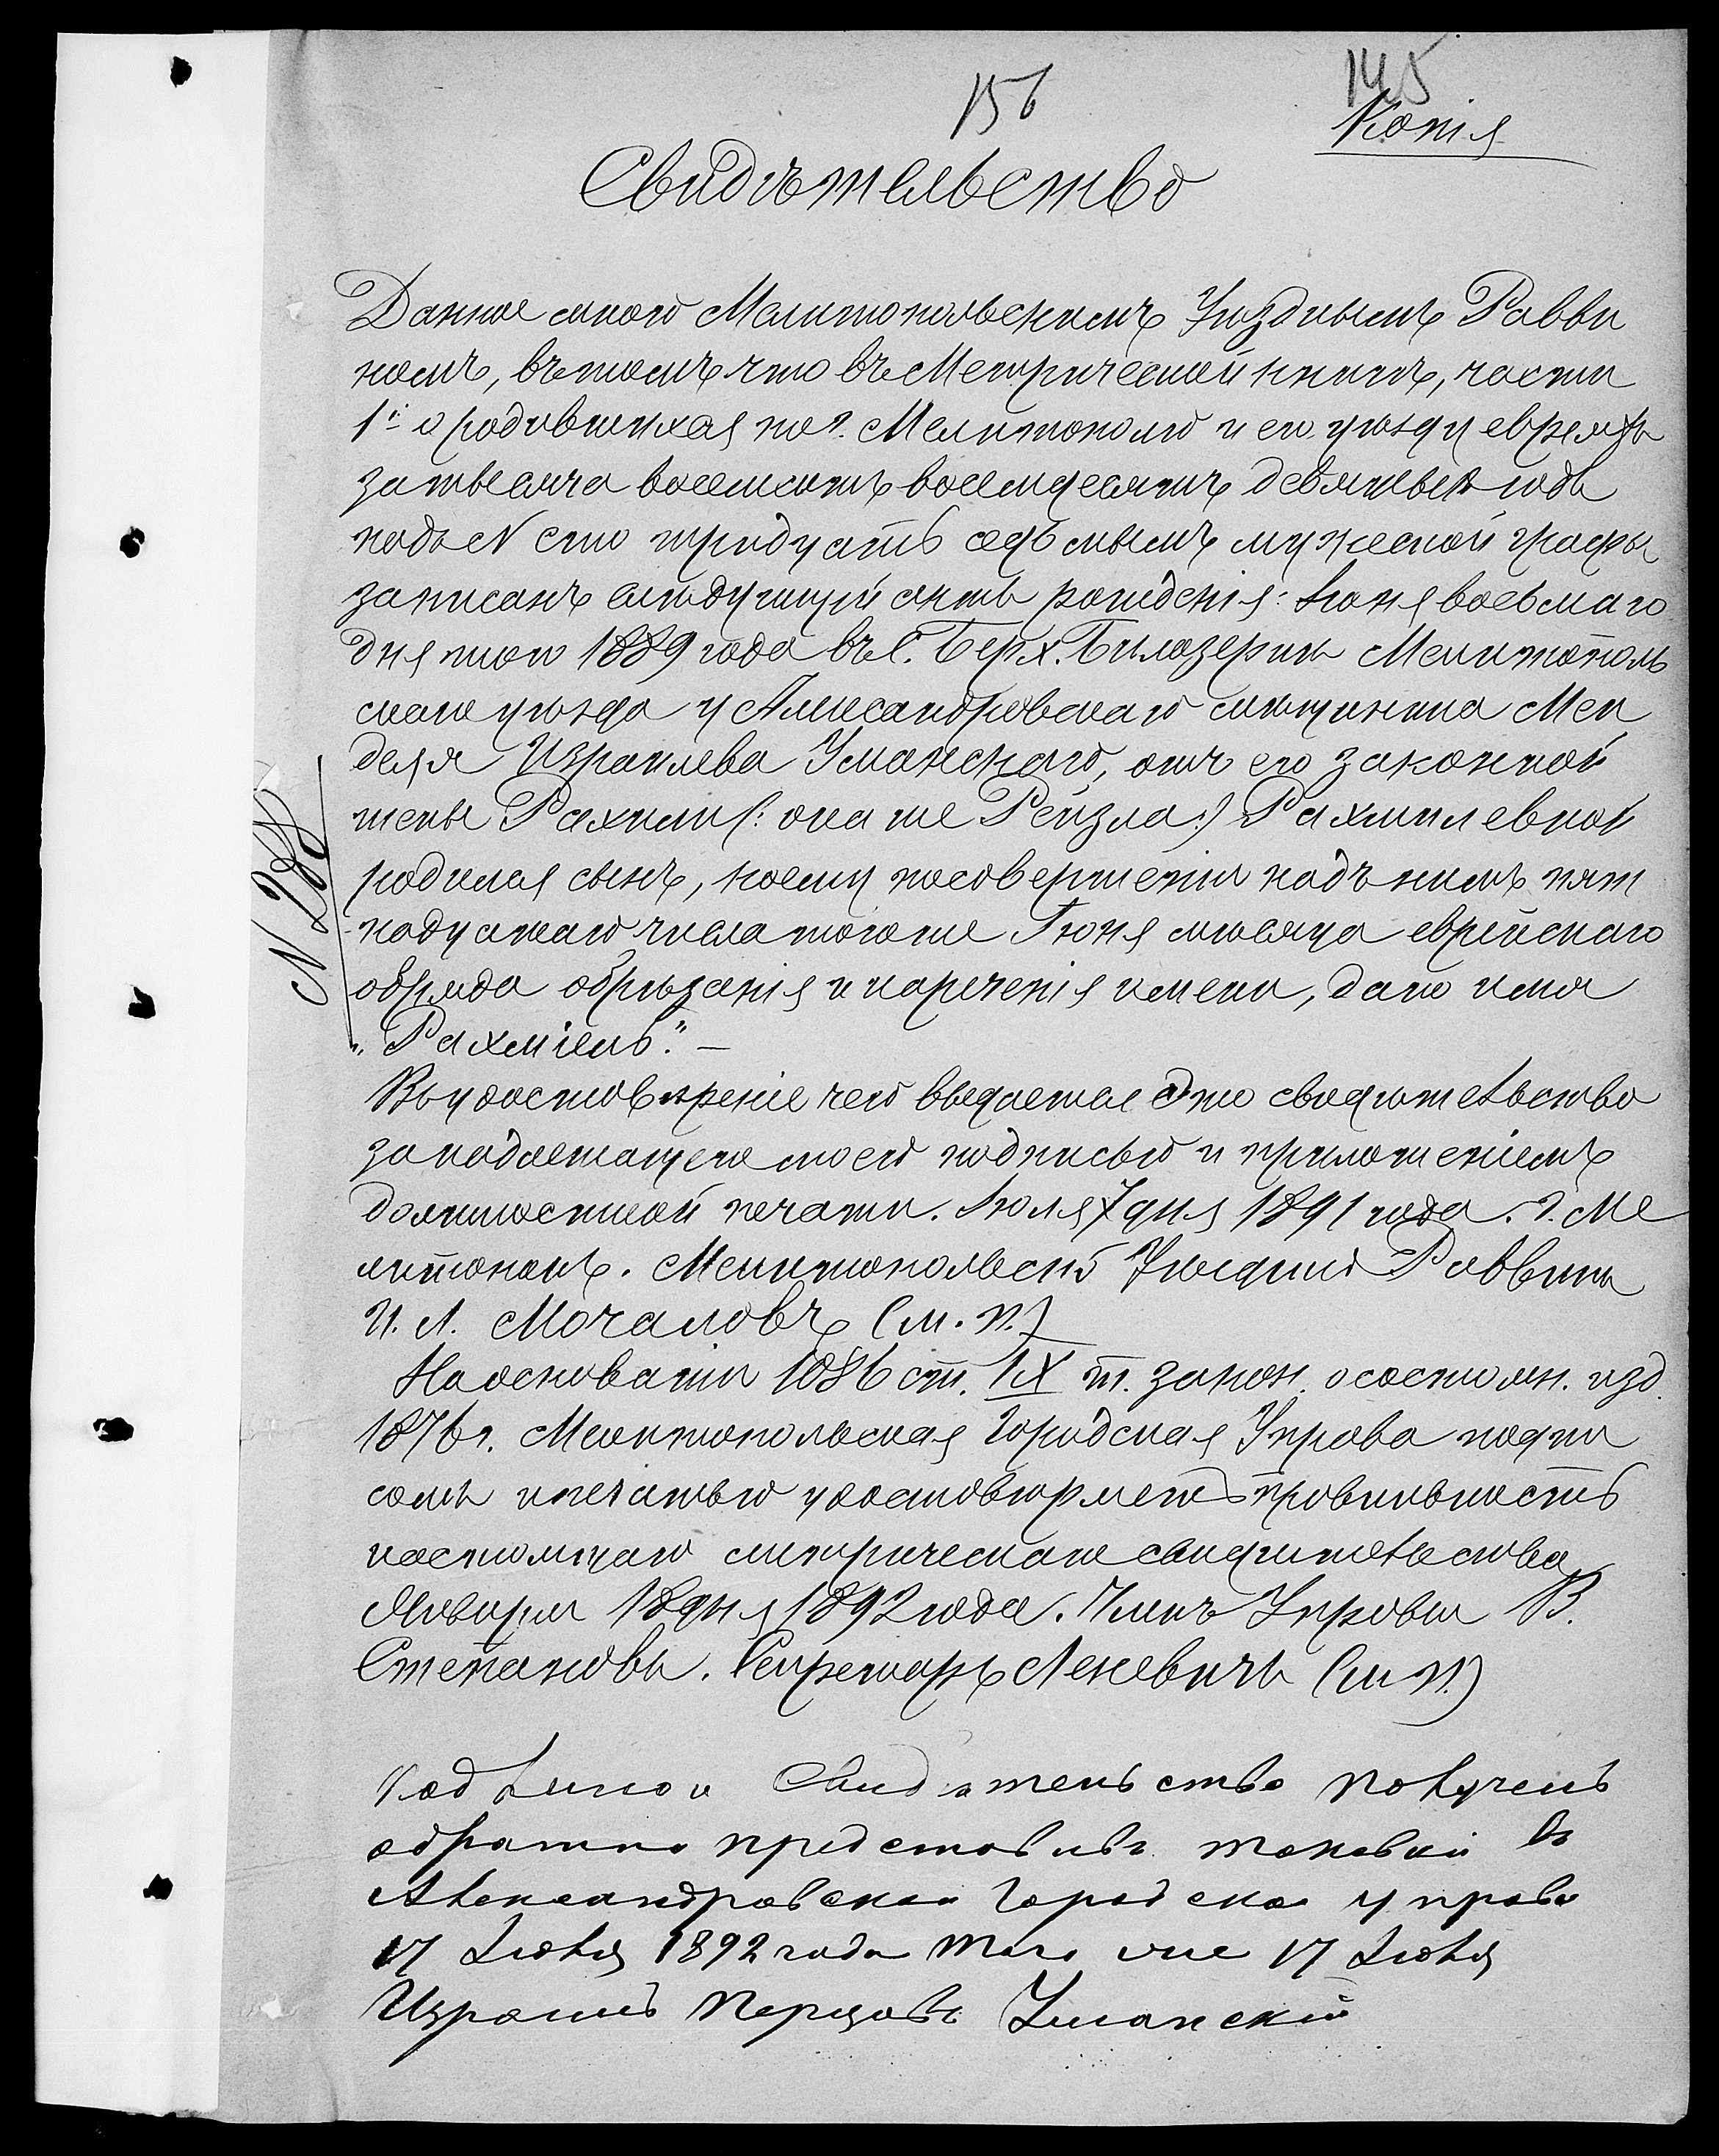 156
145
Копія
Свидѣтельство
Данное мною Мелитопольскимъ Уѣзднымъ Равви
номъ, въ томъ что въ Метрической книгѣ, части
1й о родившихся по г. Мелитополю и его уѣзду евреяхъ
за тысяча восемьсотъ восемдесятъ девятый годъ
подъ N сто тридцать седьмымъ мужеской графы
записанъ слѣдующій актъ рожденія: Іюня восьмаго
дня того 1889 года въ С. Верх. Бѣлозеркѣ Мелитополь
скаго уѣзда у Александровскаго мѣщанина Мен
деля Израилева Уманскаго, отъ его законной
жены Рахили (: она же Рейзла :) Рахмилевной
родился сынъ, коему по совершеніи надъ нимъ пят
надцатаго числа того же Іюня мѣсяца еврейскаго
обряда обрѣзанія и нареченія имени, дано имя
„Рахміель". —
N 288
Въ удостовѣреніе чего выдается это свидѣтельство
за надлежащею моею подписью и приложеніемъ
должностной печати. Іюля 7 дня 1891 года. г. Ме
литополь. Мелитопольскій Уѣздный Раввинъ
И. Л. Мочаловъ (М. П.)
На основаніи 1086 ст. IX т. закон. о состоян. изд.
1876 г. Мелитопольская Городская Управа подпи
сомъ и печатью удостовѣряетъ правильность
настоящаго метрическаго свидѣтельства
Января 18 дня 1892 года. Членъ Управы В.
Степановъ. Секретарь Леневичъ (М. П.)
Подлиной Свидѣтельство получилъ
обратно представивъ таковой въ
Александровскои Городской управы
17 Іюля 1892 года того же 17 Іюля
Израиль Перцовъ Уманскій